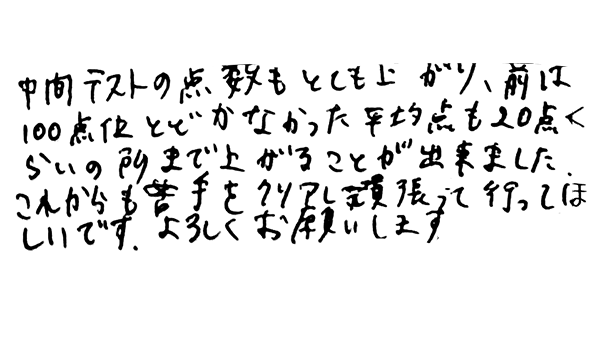 中間テストの点数もとても上がり、前は
100点位とどかなかった平均点も20点く
らいの所まで上がることが出来ました。
これからも苦手をクリアし頑張って行ってほ
しいです。よろしくお願いします